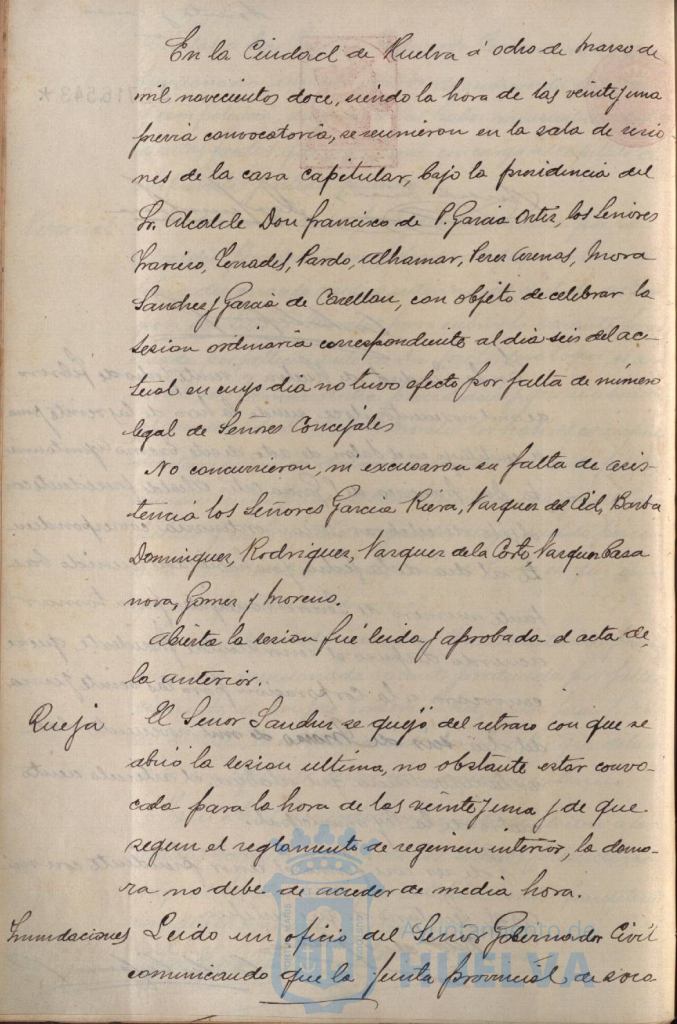 En la Ciudad de Huelva á ocho de Marzo de
mil novecientos doce, siendo la hora de las veinte y una
previa convocatoria, se reunieron en la sala de sesio
nes de la casa capitular, bajo la presidencia del
Sr. Alcalde Don Francisco de P. Garcia Ortiz, los Señores
Travieso, Terrades, Pardo, Alhamar, Perez Arenas, Mora
Sanchez y Garcia de Castellau, con objeto de celebrar la
sesion ordinaria correspondiente al dia seis del ac-
tual en cuyo dia no tuvo efecto por falta de número
legal de Señores Concejales
No concurrieron, ni excusaron su falta de asis-
tencia los Señores Garcia Riera, Vazquez del Cid, Barba
Dominguez, Rodriguez, Vazquez de la Corte, Vazquez Casa
nova, Gomez y Moreno.
Abierta la sesion fué leida y aprobada el acta de
la anterior.
Queja El Señor Sanchez se quejó del retraso con que se
abrió la sesion ultima, no obstante estar convo-
cada para la hora de las veinte y una y de que
segun el reglamento de regimen interior, la demo-
ra no debe de acceder de media hora.
Inundaciones Leido un oficio del Señor Gobernador Civil
comunicando que la Junta provincial de soco
HUELVA